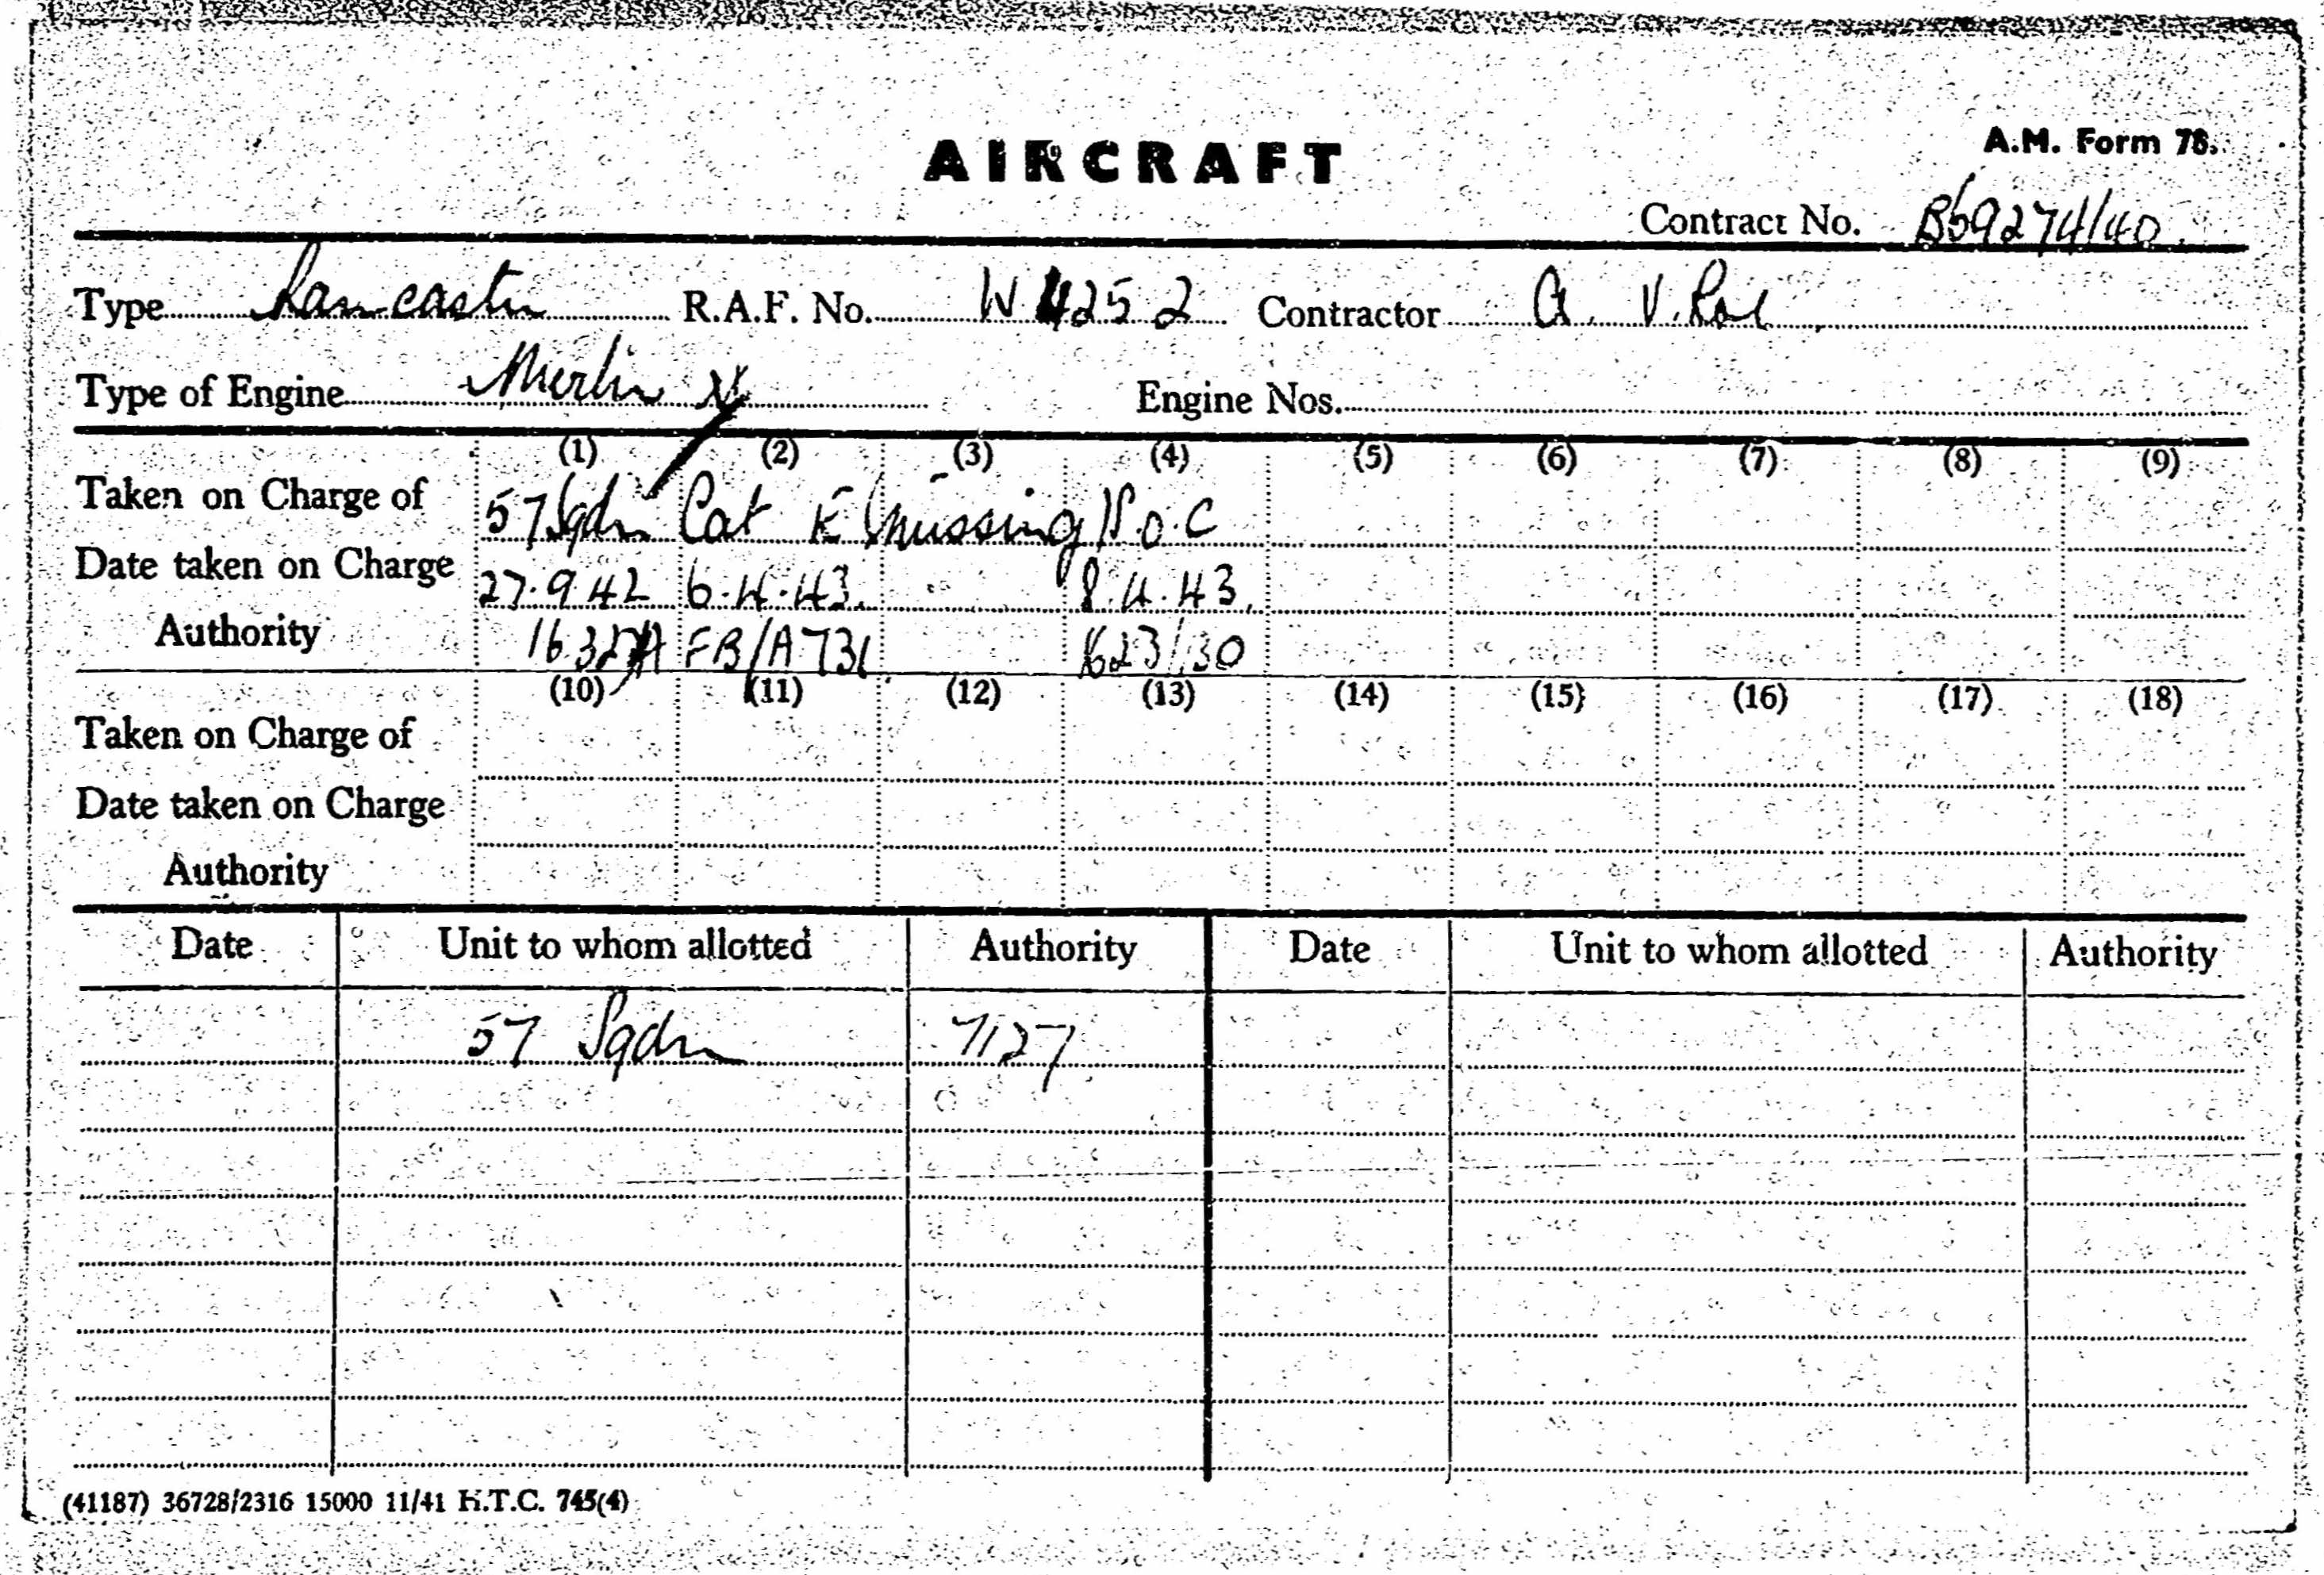 AIRCRAFT
A.M. Form 78.
Contract No. B69274/40
Type Lancaster R.A.F. No. W4252 Contractor A. V. Roe
Type of Engine Merlin Engine Nos.
(1) (2) (3) (4) (5) (6) (7) (8) (9)
Taken on Charge of 57 Sqdn Cat E missing S.O.C
Date taken on Charge 27.9.42 6.4.43. 8.4.43.
Authority FB/A731 623/30
(10) (11) (12) (13) (14) (15) (16) (17) (18)
Taken on Charge of
Date taken on Charge
Authority
Date Unit to whom allotted Authority Date Unit to whom allotted Authority
57 Sqdn 7127
(41187) 36728/2316 15000 11/41 H.T.C. 745(4)